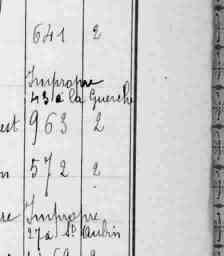 641 2
Impropre
43 à la Guerche
est 963 2
572 2
Impropre
27 à St Aubin